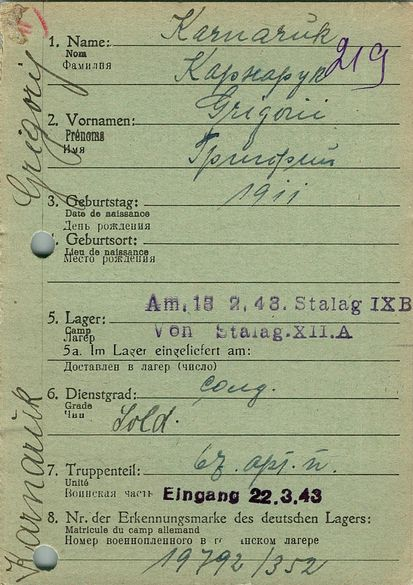 Grigorij
Karnarük
1. Name: Karnarük
Nom
Фамилия Карнарук
219
2. Vornamen: Grigorii
Prénoms
Имя Григорий
3. Geburtstag: 1911
Date de naissance
День рождения
Geburtsort:
Lieu de naissance
Место рождения
Am. 18 2.43. Stalag IX B
5. Lager: Von Stalag. XII. A
Camp
Лагерь
5a. Im Lager eingeliefert am:
Доставлен в лагерь (число)
6. Dienstgrad: солд.
Grade
Чин Sold.
7. Truppenteil: 67. арт. п.
Unité
Воинская часть Eingang 22.3.43
8. Nr. der Erkennungsmarke des deutschen Lagers:
Matricule du camp allemand
Номер военнопленного в германском лагере
19792/352